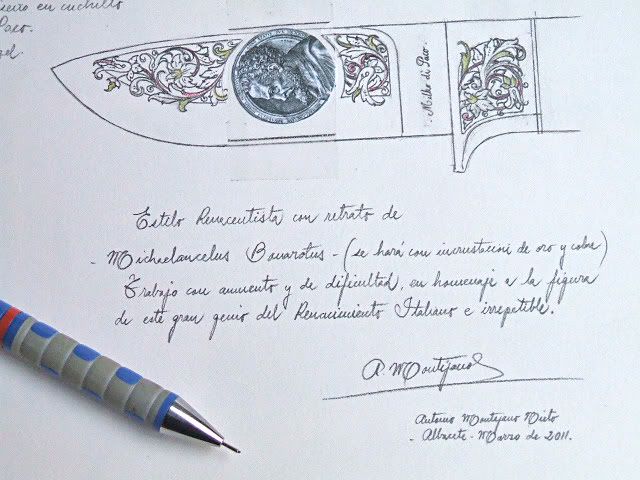 en cuchillo
Paco.
Melko di Paco.
Estilo Renacentista con retrato de
- Michaelancelus Bonarotus - (se hará con incrustacini de oro y cobre)
Trabajo con aumento y de dificultad, en homenaje a la figura
de este gran genio del Renacimiento Italiano e irrepetible.
A. Montejano
Antonio Montejano Nieto
- Albacete - Marzo de 2011.